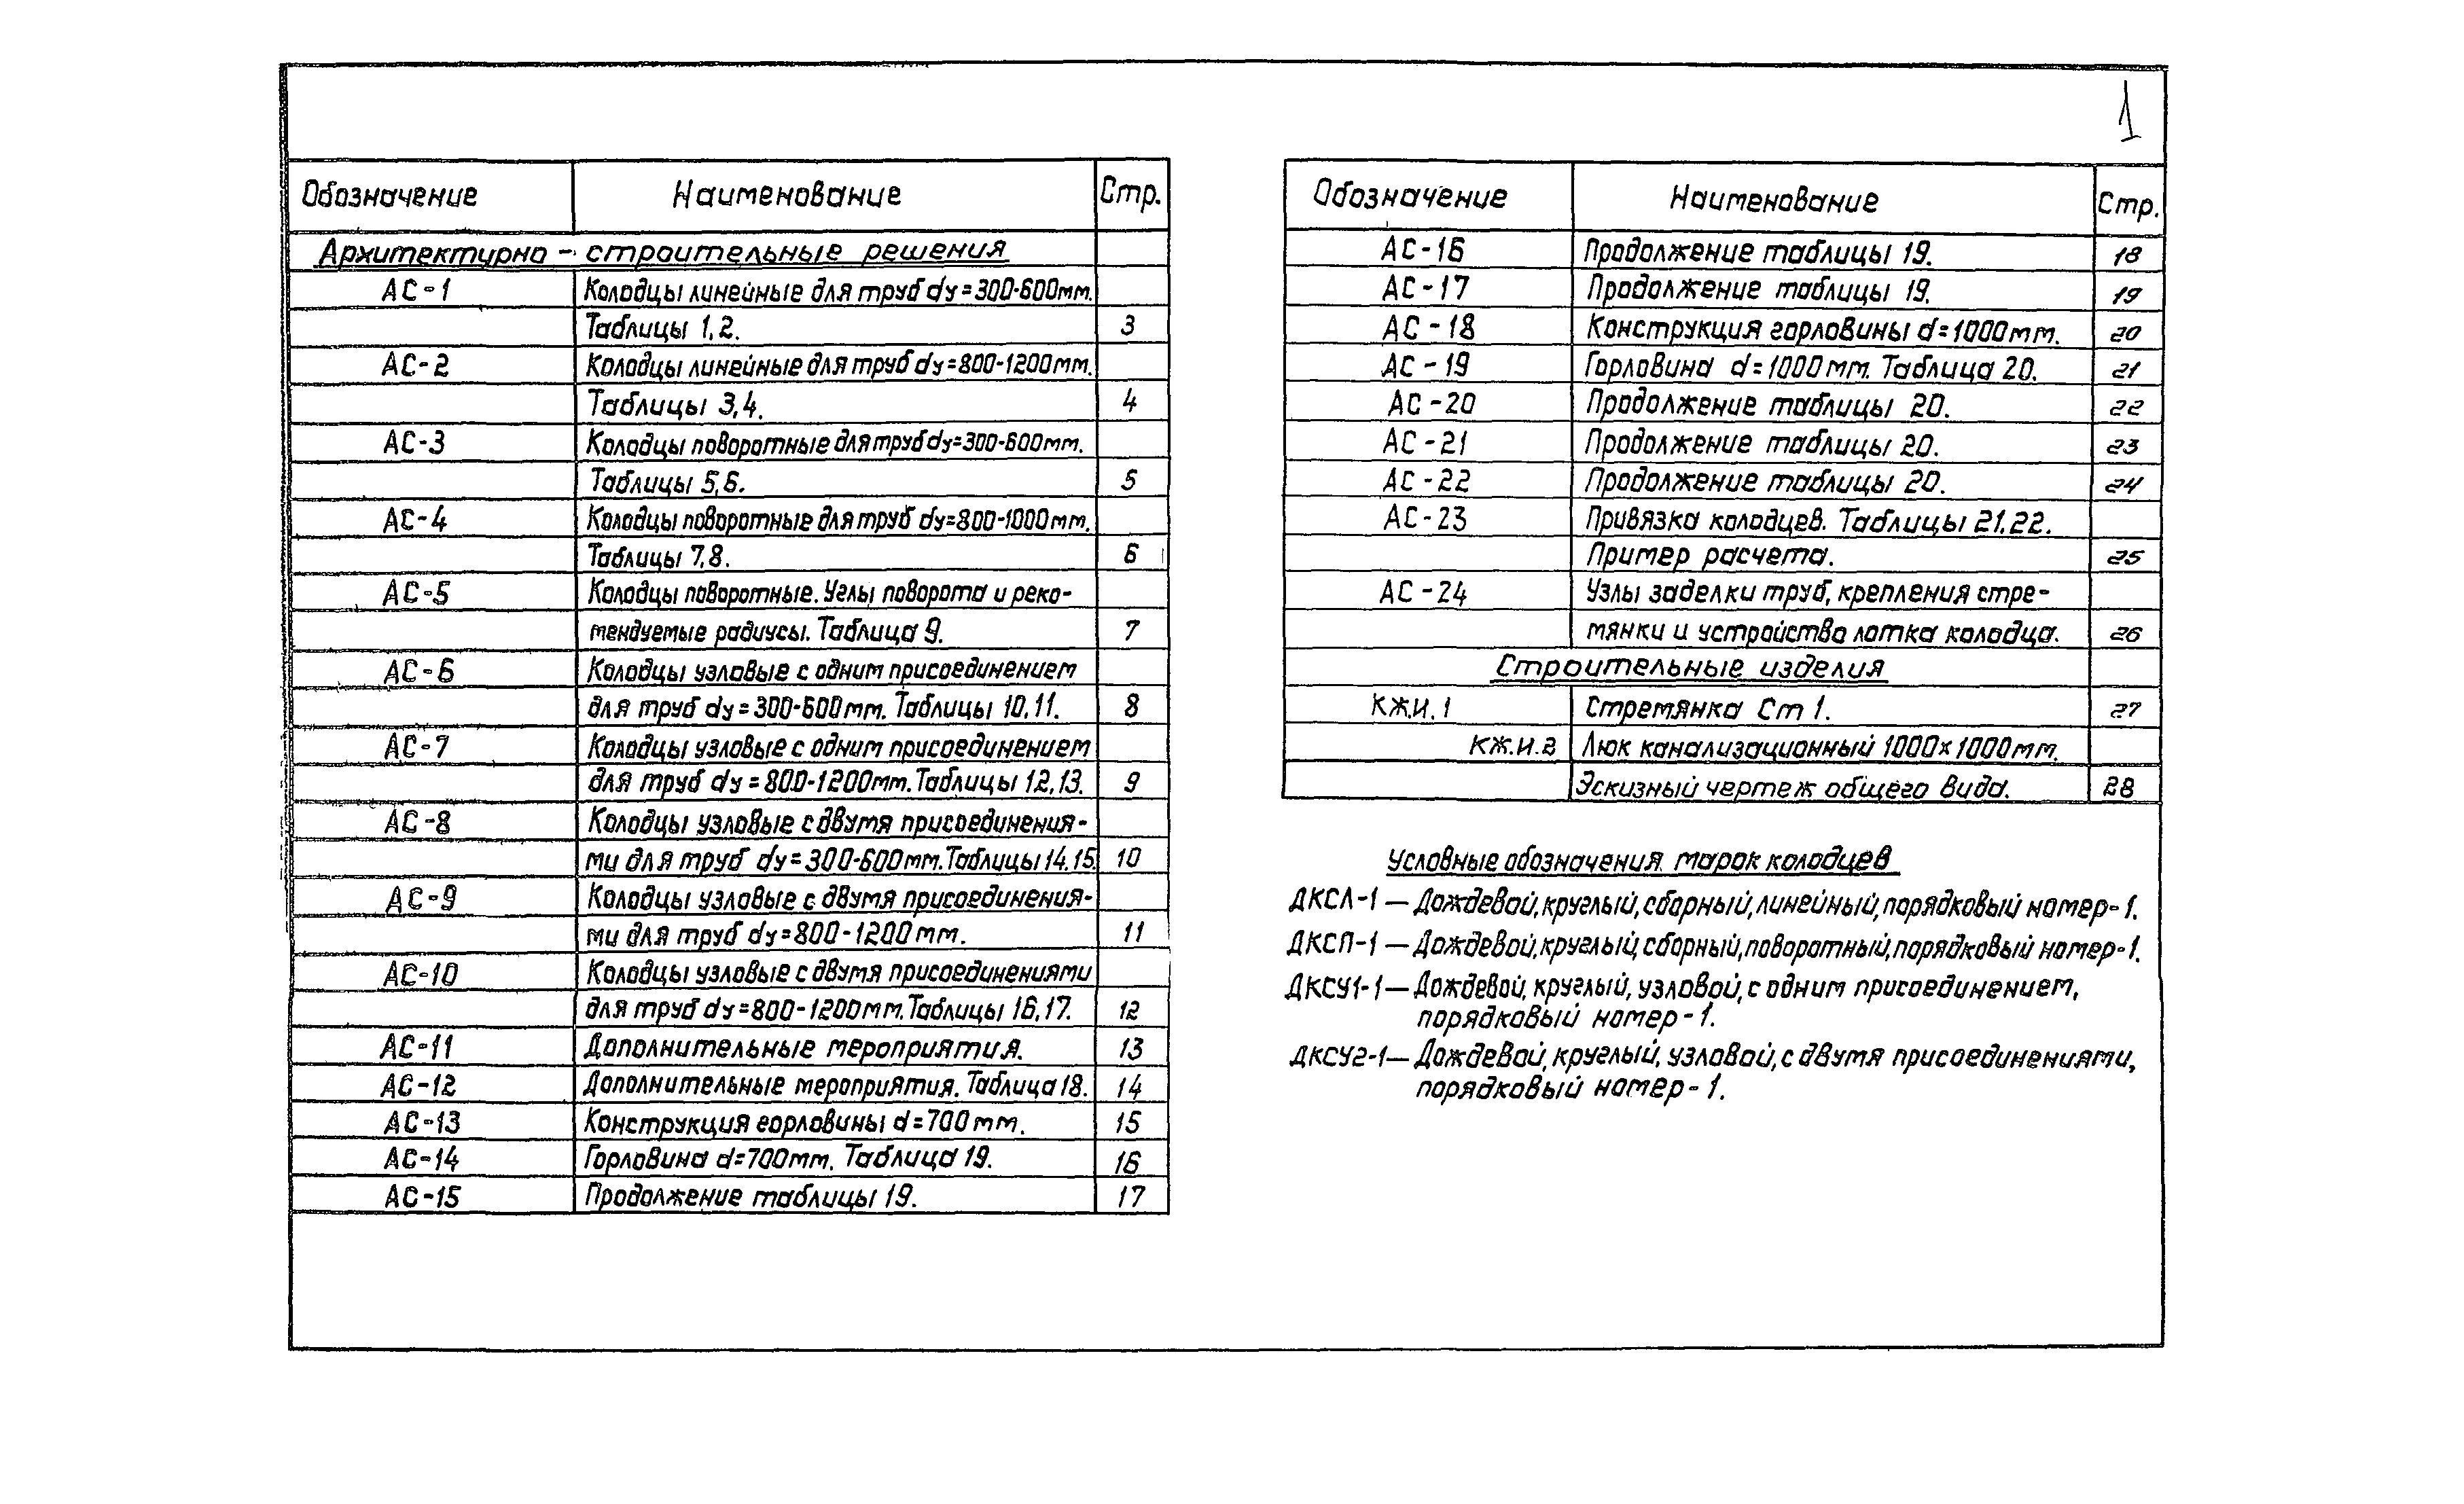 1
Обозначение Наименование Стр.
Архитектурно - строительные решения
АС-1 Колодцы линейные для труб dу=300-600мм.
Таблицы 1,2. 3
АС-2 Колодцы линейные для труб dу=800-1200мм.
Таблицы 3,4. 4
АС-3 Колодцы поворотные для труб dу=300-600мм.
Таблицы 5,6. 5
АС-4 Колодцы поворотные для труб dу=800-1000мм.
Таблицы 7,8. 6
АС-5 Колодцы поворотные. Углы поворота и реко-
мендуемые радиусы. Таблица 9. 7
АС-6 Колодцы узловые с одним присоединением
для труб dу=300-600мм. Таблицы 10,11. 8
АС-7 Колодцы узловые с одним присоединением
для труб dу=800-1200мм. Таблицы 12,13. 9
АС-8 Колодцы узловые с двумя присоединения-
ми для труб dу=300-600мм. Таблицы 14,15 10
АС-9 Колодцы узловые с двумя присоединения-
ми для труб dу=800-1200мм. 11
АС-10 Колодцы узловые с двумя присоединениями
для труб dу=800-1200мм. Таблицы 16,17. 12
АС-11 Дополнительные мероприятия. 13
АС-12 Дополнительные мероприятия. Таблица 18. 14
АС-13 Конструкция горловины d=700мм. 15
АС-14 Горловина d=700мм. Таблица 19. 16
АС-15 Продолжение таблицы 19. 17
Обозначение Наименование Стр.
АС-16 Продолжение таблицы 19. 18
АС-17 Продолжение таблицы 19. 19
АС-18 Конструкция горловины d=1000мм. 20
АС-19 Горловина d=1000мм. Таблица 20. 21
АС-20 Продолжение таблицы 20. 22
АС-21 Продолжение таблицы 20. 23
АС-22 Продолжение таблицы 20. 24
АС-23 Привязка колодцев. Таблицы 21,22.
Пример расчета. 25
АС-24 Узлы заделки труб, крепления стре-
мянки и устройства лотка колодца. 26
Строительные изделия
КЖ.И.1 Стремянка Ст 1. 27
КЖ.И.2 Люк канализационный 1000х1000мм.
Эскизный чертеж общего вида. 28
Условные обозначения марок колодцев
ДКСЛ-1 — Дождевой, круглый, сборный, линейный, порядковый номер-1.
ДКСП-1 — Дождевой, круглый, сборный, поворотный, порядковый номер-1.
ДКСУ1-1 — Дождевой, круглый, узловой, с одним присоединением,
порядковый номер-1.
ДКСУ2-1 — Дождевой, круглый, узловой, с двумя присоединениями,
порядковый номер-1.